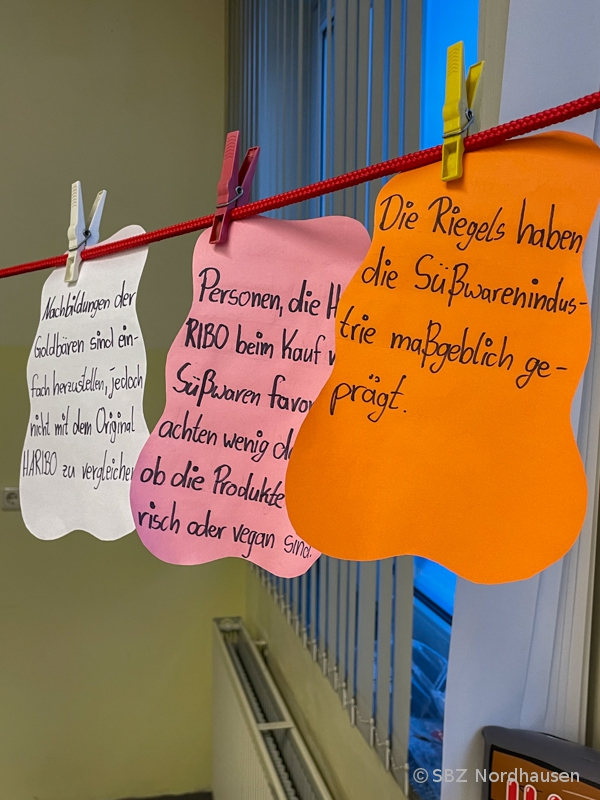 Nachbildungen der
Goldbären sind ein-
fach herzustellen, jedoch
nicht mit dem Original
HARIBO zu vergleichen
Personen, die H
RIBO beim Kauf
Süßwaren favor
achten wenig
ob die Produkte
risch oder vegan sind.
Die Riegels haben
die Süßwarenindus-
trie maßgeblich ge-
prägt.
© SBZ Nordhausen